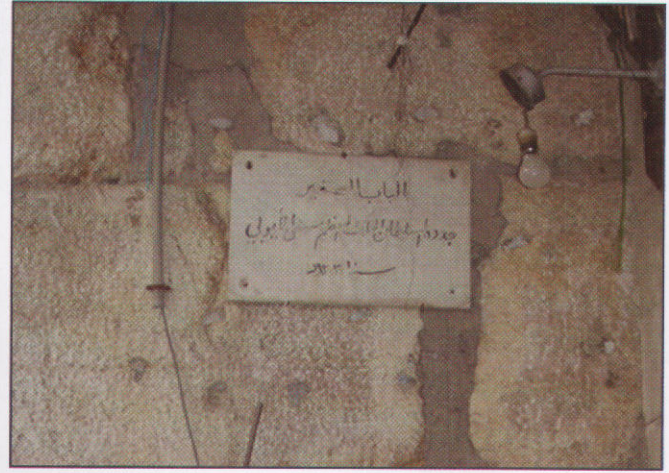 الباب الصغير
جدده السلطان الملك المعظم عيسى الأيوبي
سنة